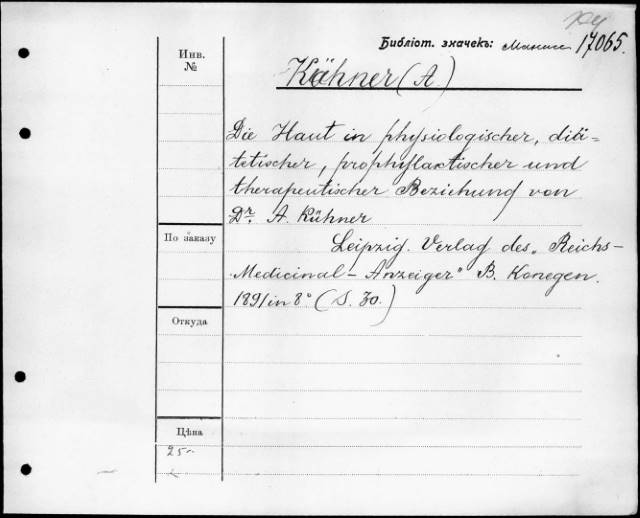 Библіот. значекъ: 17065.
Инв.
№
Kühner (A.)
Die Haut in physiologischer, diä-
tetischer, prophylactischer und
therapeutischer Beziehung von
Dr. A. Kühner
По заказу
Leipzig. Verlag des „Reichs-
Medicinal-Anzeiger" B. Konegen.
1891 in 8° (S. 30.)
Откуда
Цѣна
25